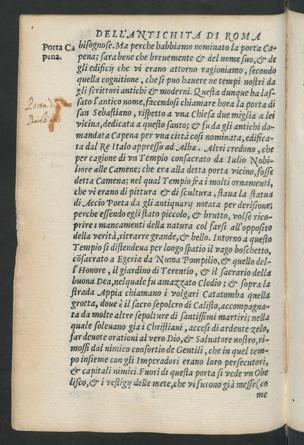 DELL'ANTICHITA DI ROMA
Porta Ca
pena.
bisognose. Ma perche habbiamo nominato la porta Ca-
pena; sara bene che breuemente & del nome suo, & de
gli edificij che vi erano attorno ragioniamo, secondo
quella cognitione, che si puo hauere ne tempi nostri da
gli scrittori antichi & moderni. Questa dunque ha las-
sato l'antico nome, facendosi chiamare hora la porta di
san Sebastiano, rispetto a vna Chiesa due miglia a lei
vicina, dedicata a questo santo; & fu da gli antichi do-
mandata Capena per vna città cosi nominata, edifica-
ta dal Re Italo appresso ad Alba. Altri credono, che
per cagione di vn Tempio consacrato da Iulio Nobi-
liore alle Camene; che era alla detta porta vicino, fosse
detta Camena; nel qual Tempio fra i molti ornamenti,
che vi erano di pittura & di scultura, staua la statua
di Accio Poeta da gli antiquarij notata per derisione;
perche essendo egli stato piccolo, & brutto, volse rico-
prire i mancamenti della natura col farsi all'opposito
della verità, ritrarre grande, & bello. Intorno a questo
Tempio si distendeua per lungo spatio il vago boschetto,
cōsacrato a Egeria da Numa Pompilio, & quello del-
l'Honore, il giardino di Terentio, & il sacrario della
buona Dea, nel quale fu amazzato Clodio; & sopra la
strada Appia chiamano i volgari Catatomba quella
grotta, doue è il sacro sepolcro di Calisto, accompagna-
ta da molte altre sepolture di santissimi martiri; nella
quale soleuano già i Christiani, accesi di ardente zelo,
far deuote orationi al vero Dio, & Saluatore nostro, ri-
mossi dal nimico consortio de Gentili, che in quel tem-
po insieme con gli Imperadori erano loro persecutori,
& capitali nimici. Fuori di questa porta si vede vn Obe
lisco, & i vestigij delle mete, che vi furono già messe (co
me